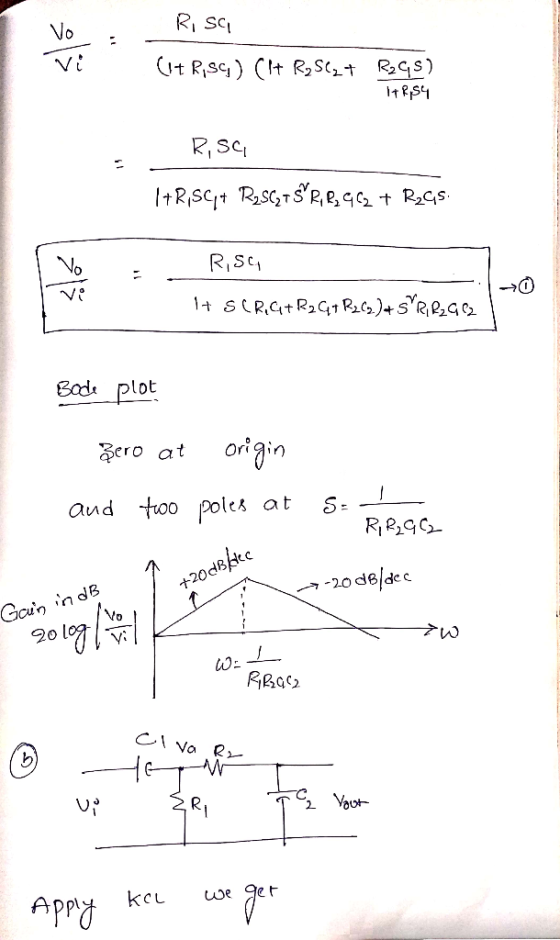 Vo/Vi = R₁SC₁ / (1+R₁SC₁) (1+R₂SC₂+ R₂C₁S/1+R₁SC₁)
= R₁SC₁ / 1+R₁SC₁+R₂SC₂+S²R₁R₂C₁C₂ + R₂C₁S.
Vo/Vi = R₁SC₁ / 1+ S(R₁C₁+R₂C₁+R₂C₂)+S²R₁R₂C₁C₂ →①
Bode plot
Zero at origin
and two poles at S= 1/R₁R₂C₁C₂
+20dB/dec
→-20dB/dec
Gain in dB
20 log |Vo/Vi|
W
W= 1/R₁R₂C₁C₂
ⓑ
C1 Va R₂
Vi R₁ C₂ Vout
Apply KCL we get